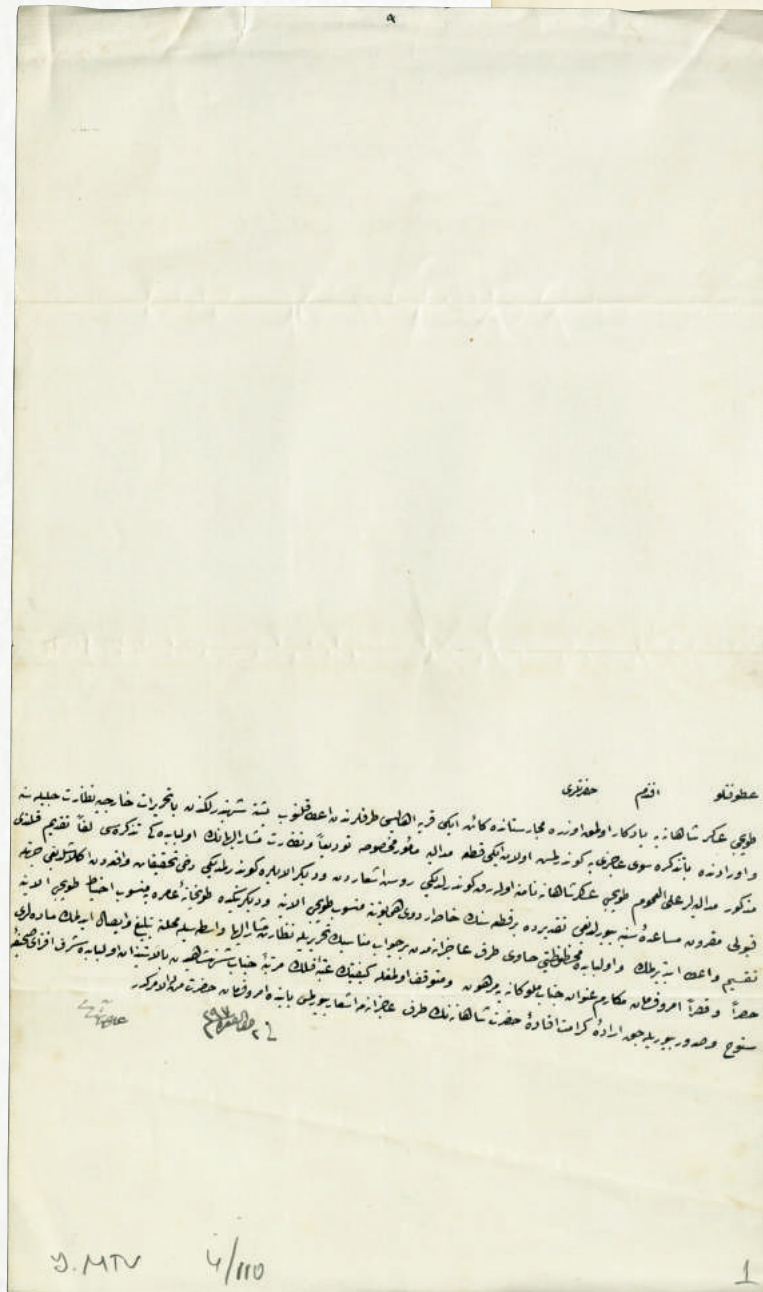 عطوفتلو افندم حضرتلری
طوپجی عساکر شاهانه یه یادکار اولمق اوزره مجارستانده کائن ایکی قریه اهالیسی طرفلرندن اعمال قلنوب پشته شهبندرلکندن با تحریرات خارجیه نظارت جلیله سنه
و اورادن ده با تذکره سوی عاجزی یه کوندرلمش اولان ایکی قطعه مدالیه مأمور مخصوصه تودیعاً و نظارت مشارالیهانك اولبابده کی تذکره سی لفاً تقدیم قلندی
مذکور مدالیه لر علی العموم طوپجی عساکر شاهانه نامنه اوله رق کوندرلدیکی روش اشعاردن و دیکر الایلره کوندرلمدیکی دخی تحقیقات واقعه دن اکلاشلدیغی
قبولی مقرون مساعدهٔ سنیه بیورلدیغی تقدیرده بر قطعه سنك خاصه اردوی همایوننه منسوب طوپجی الاینه و دیکرینك ده طوپخانهٔ عامره یه منسوب احتیاط طوپجی الاینه
تقسیم و اعطا ایتدیرلمك و اولبابده محظوظیتی حاوی طرف عاجزانه مدن بر جواب مناسبك تحریریله نظارت مشارالیها واسطه سیله محلنه تبلیغ و ایصال ایدلمك ماده لری
حصراً و قصراً امر و فرمان مکارم عنوان جناب ملوکانه یه مرهون و متوقف اولمغله کیفیتك عتبهٔ فلك مرتبهٔ جناب شهنشاهیدن بالاستیذان اولبابده شرف افزای صحیفهٔ
سنوح و صدور بیوریله جق ارادهٔ کرامت افادهٔ حضرت شاهانه نك طرف عاجزانه مه اشعار بیورلمسی بابنده امر و فرمان حضرت من له الامرکدر
فی ٢ ٩٧
Y. MTV 4/110
1